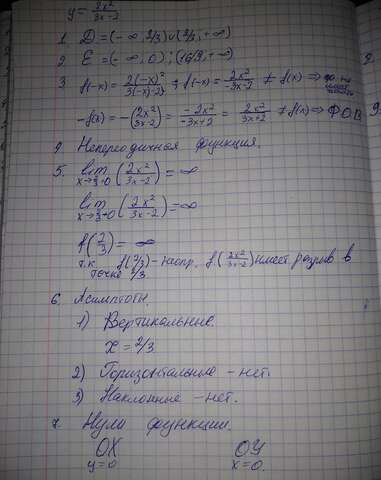 y = 2x²/3x-2
1. D = (-∞; 2/3) ∪ (2/3; +∞)
2. E = (-∞; 0); (16/9; +∞)
3. f(-x) = 2(-x)²/3(-x)-2; f(-x) = 2x²/-3x-2 ≠ f(x) ⇒
-f(x) = -(2x²/3x-2) = -2x²/-3x+2 = 2x²/3x+2 ≠ f(x) ⇒ ФОВ
4. Непериодичная функция.
5. lim x→2/3-0 (2x²/3x-2) = ∞
lim x→2/3+0 (2x²/3x-2) = ∞
f(2/3) = ∞
т.к. f(2/3) - f(2x²/3x-2) имеет разрыв в
точке 2/3
6. Асимптоты.
1) Вертикальные.
x = 2/3
2) Горизонтальные - нет.
3) Наклонные - нет.
7. Нули функции.
OX OY
y=0 x=0.